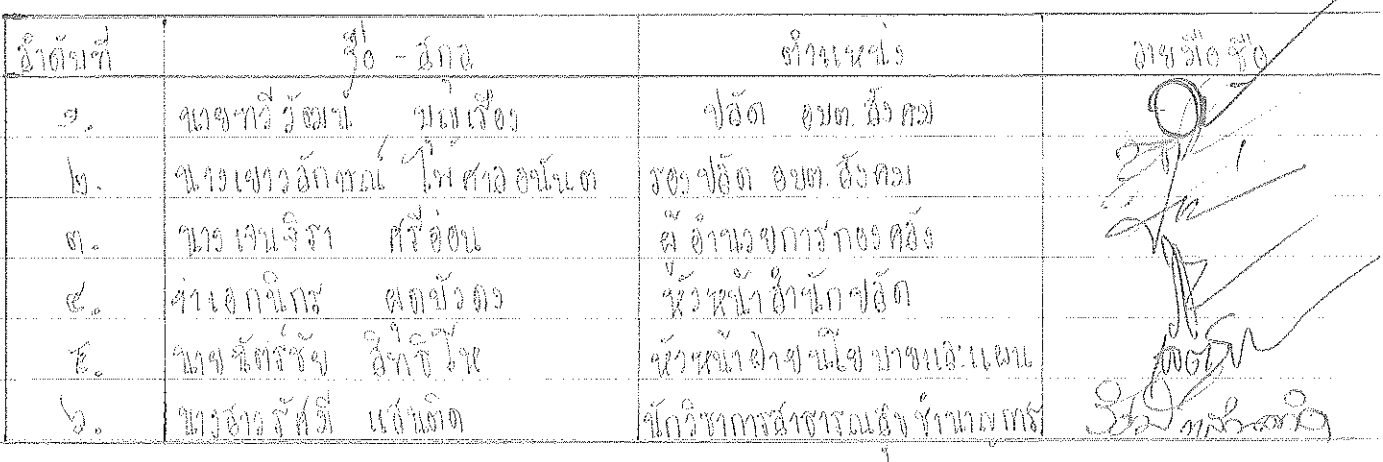 ลำดับที่ ชื่อ - สกุล ตำแหน่ง ลายมือชื่อ
๑. นายทวีวัฒน์ บุญเรือง ปลัด อบต. สังคม
๒. นางเยาวลักษณ์ ไพศาลอนันต รองปลัด อบต. สังคม
๓. นางเจนจิรา ศรีอ่อน ผู้อำนวยการกองคลัง
๔. จ่าเอกนิกร ผดบัวดง หัวหน้าสำนักปลัด
๕. นายฉัตร์ชัย สิทธิโห หัวหน้าฝ่ายนโยบายและแผน
๖. นางสาวรัศมี แสนติด นักวิชาการสาธารณสุขชำนาญการ